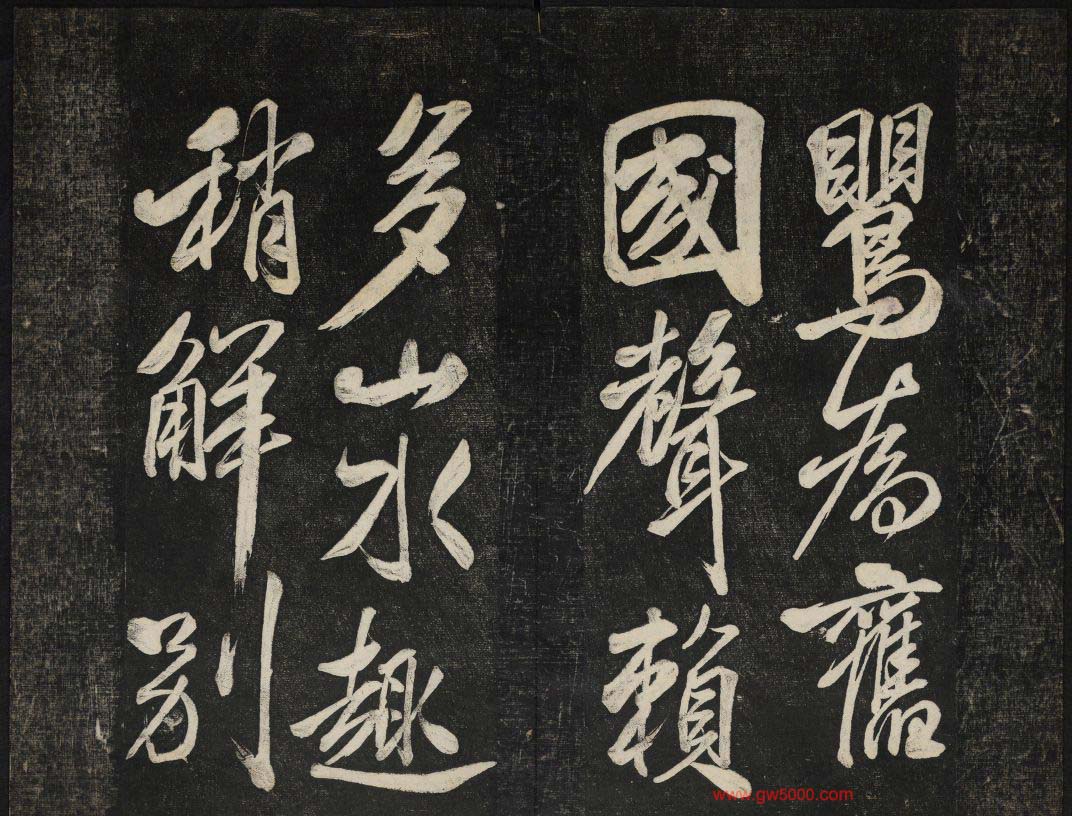 鸎為舊
國聲賴
多山水趣
稍解別
www.gw5000.com